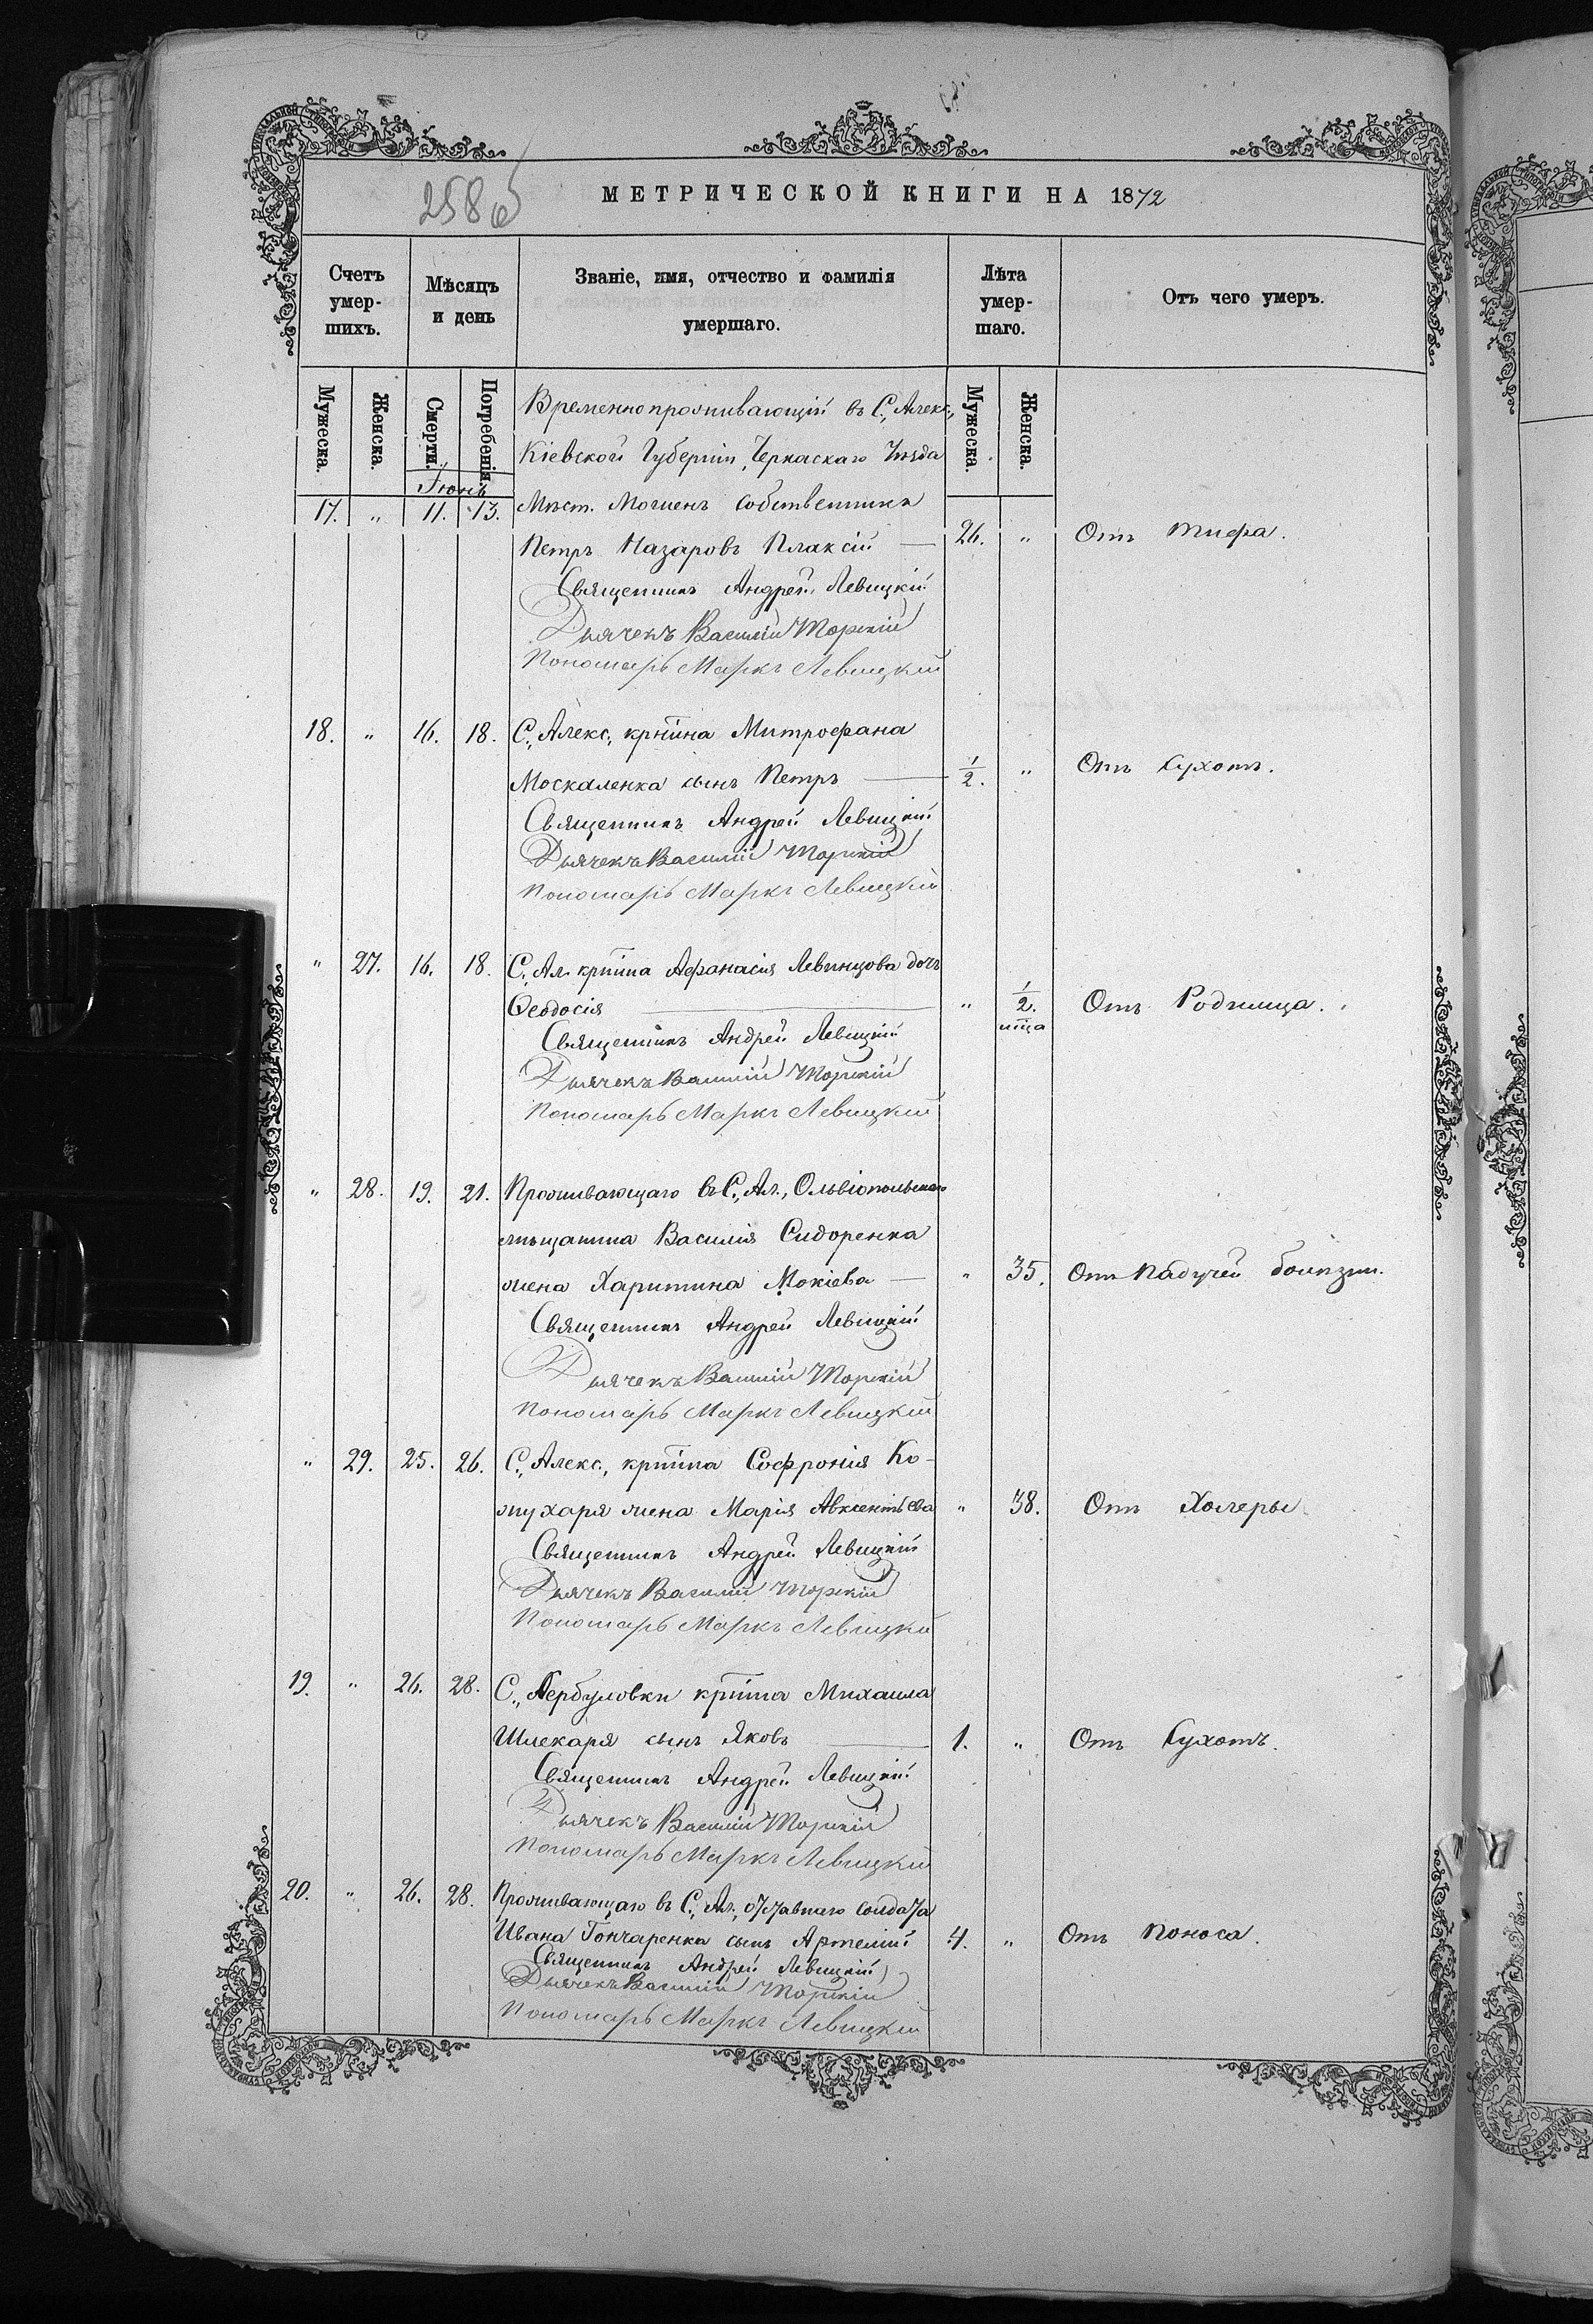 2585
МЕТРИЧЕСКОЙ КНИГИ НА 1872
Счетъ умер-шихъ.
Мѣсяцъ и день
Званіе, имя, отчество и фамилія умершаго.
Лѣта умер-шаго.
Отъ чего умеръ.
Мужеска. Женска. Смерти. Погребенія. Мужеска. Женска.
Іюнь
Временно проживающій въ С., Алекс.,
Кіевской Губерніи, Черкаскаго Уѣзда
17. „ 11. 13. Мѣст. собственника
Петръ Назаровъ Плаксій — 26. „ Отъ тифа.
Священникъ Андрей Левицкій
Дьячекъ Василій Торскій
Пономарь Маркъ Левицкій
18. „ 16. 18. С., Алекс., крн̃ина Митрофана
Москаленка сынъ Петръ — 1/2. „ Отъ Сухотъ.
Священникъ Андрей Левицкій
Дьячекъ Василій Торскій
Пономарь Маркъ Левицкій
„ 27. 16. 18. С., Ал. крн̃ина Афанасія Левинцова дочь
Ѳеодосія — „ 1/2. мц̃а Отъ Родимца.
Священникъ Андрей Левицкій
Дьячекъ Василій Торскій
Пономарь Маркъ Левицкій
„ 28. 19. 21. Проживающаго въ С., Ал., Ольвіопольскаго
мѣщанина Василія Сидоренка
жена Харитина Мокіева — „ 35. Отъ падучей болѣзни.
Священникъ Андрей Левицкій
Дьячекъ Василій Торскій
Пономарь Маркъ Левицкій
„ 29. 25. 26. С., Алекс., крн̃ина Софронія Ко-
жухаря жена Марія Авксентьева „ 38. Отъ Холеры
Священникъ Андрей Левицкій
Дьячекъ Василій Торскій
Пономарь Маркъ Левицкій
19. „ 26. 28. С., крн̃ина Михаила
Шлекаря сынъ Яковъ — 1. „ Отъ Сухотъ.
Священникъ Андрей Левицкій
Дьячекъ Василій Торскій
Пономарь Маркъ Левицкій
20. „ 26. 28. Проживающаго въ С., Ал., солдата
Ивана Гончаренка сынъ Артемій 4. „ Отъ поноса.
Священникъ Андрей Левицкій
Дьячекъ Василій Торскій
Пономарь Маркъ Левицкій